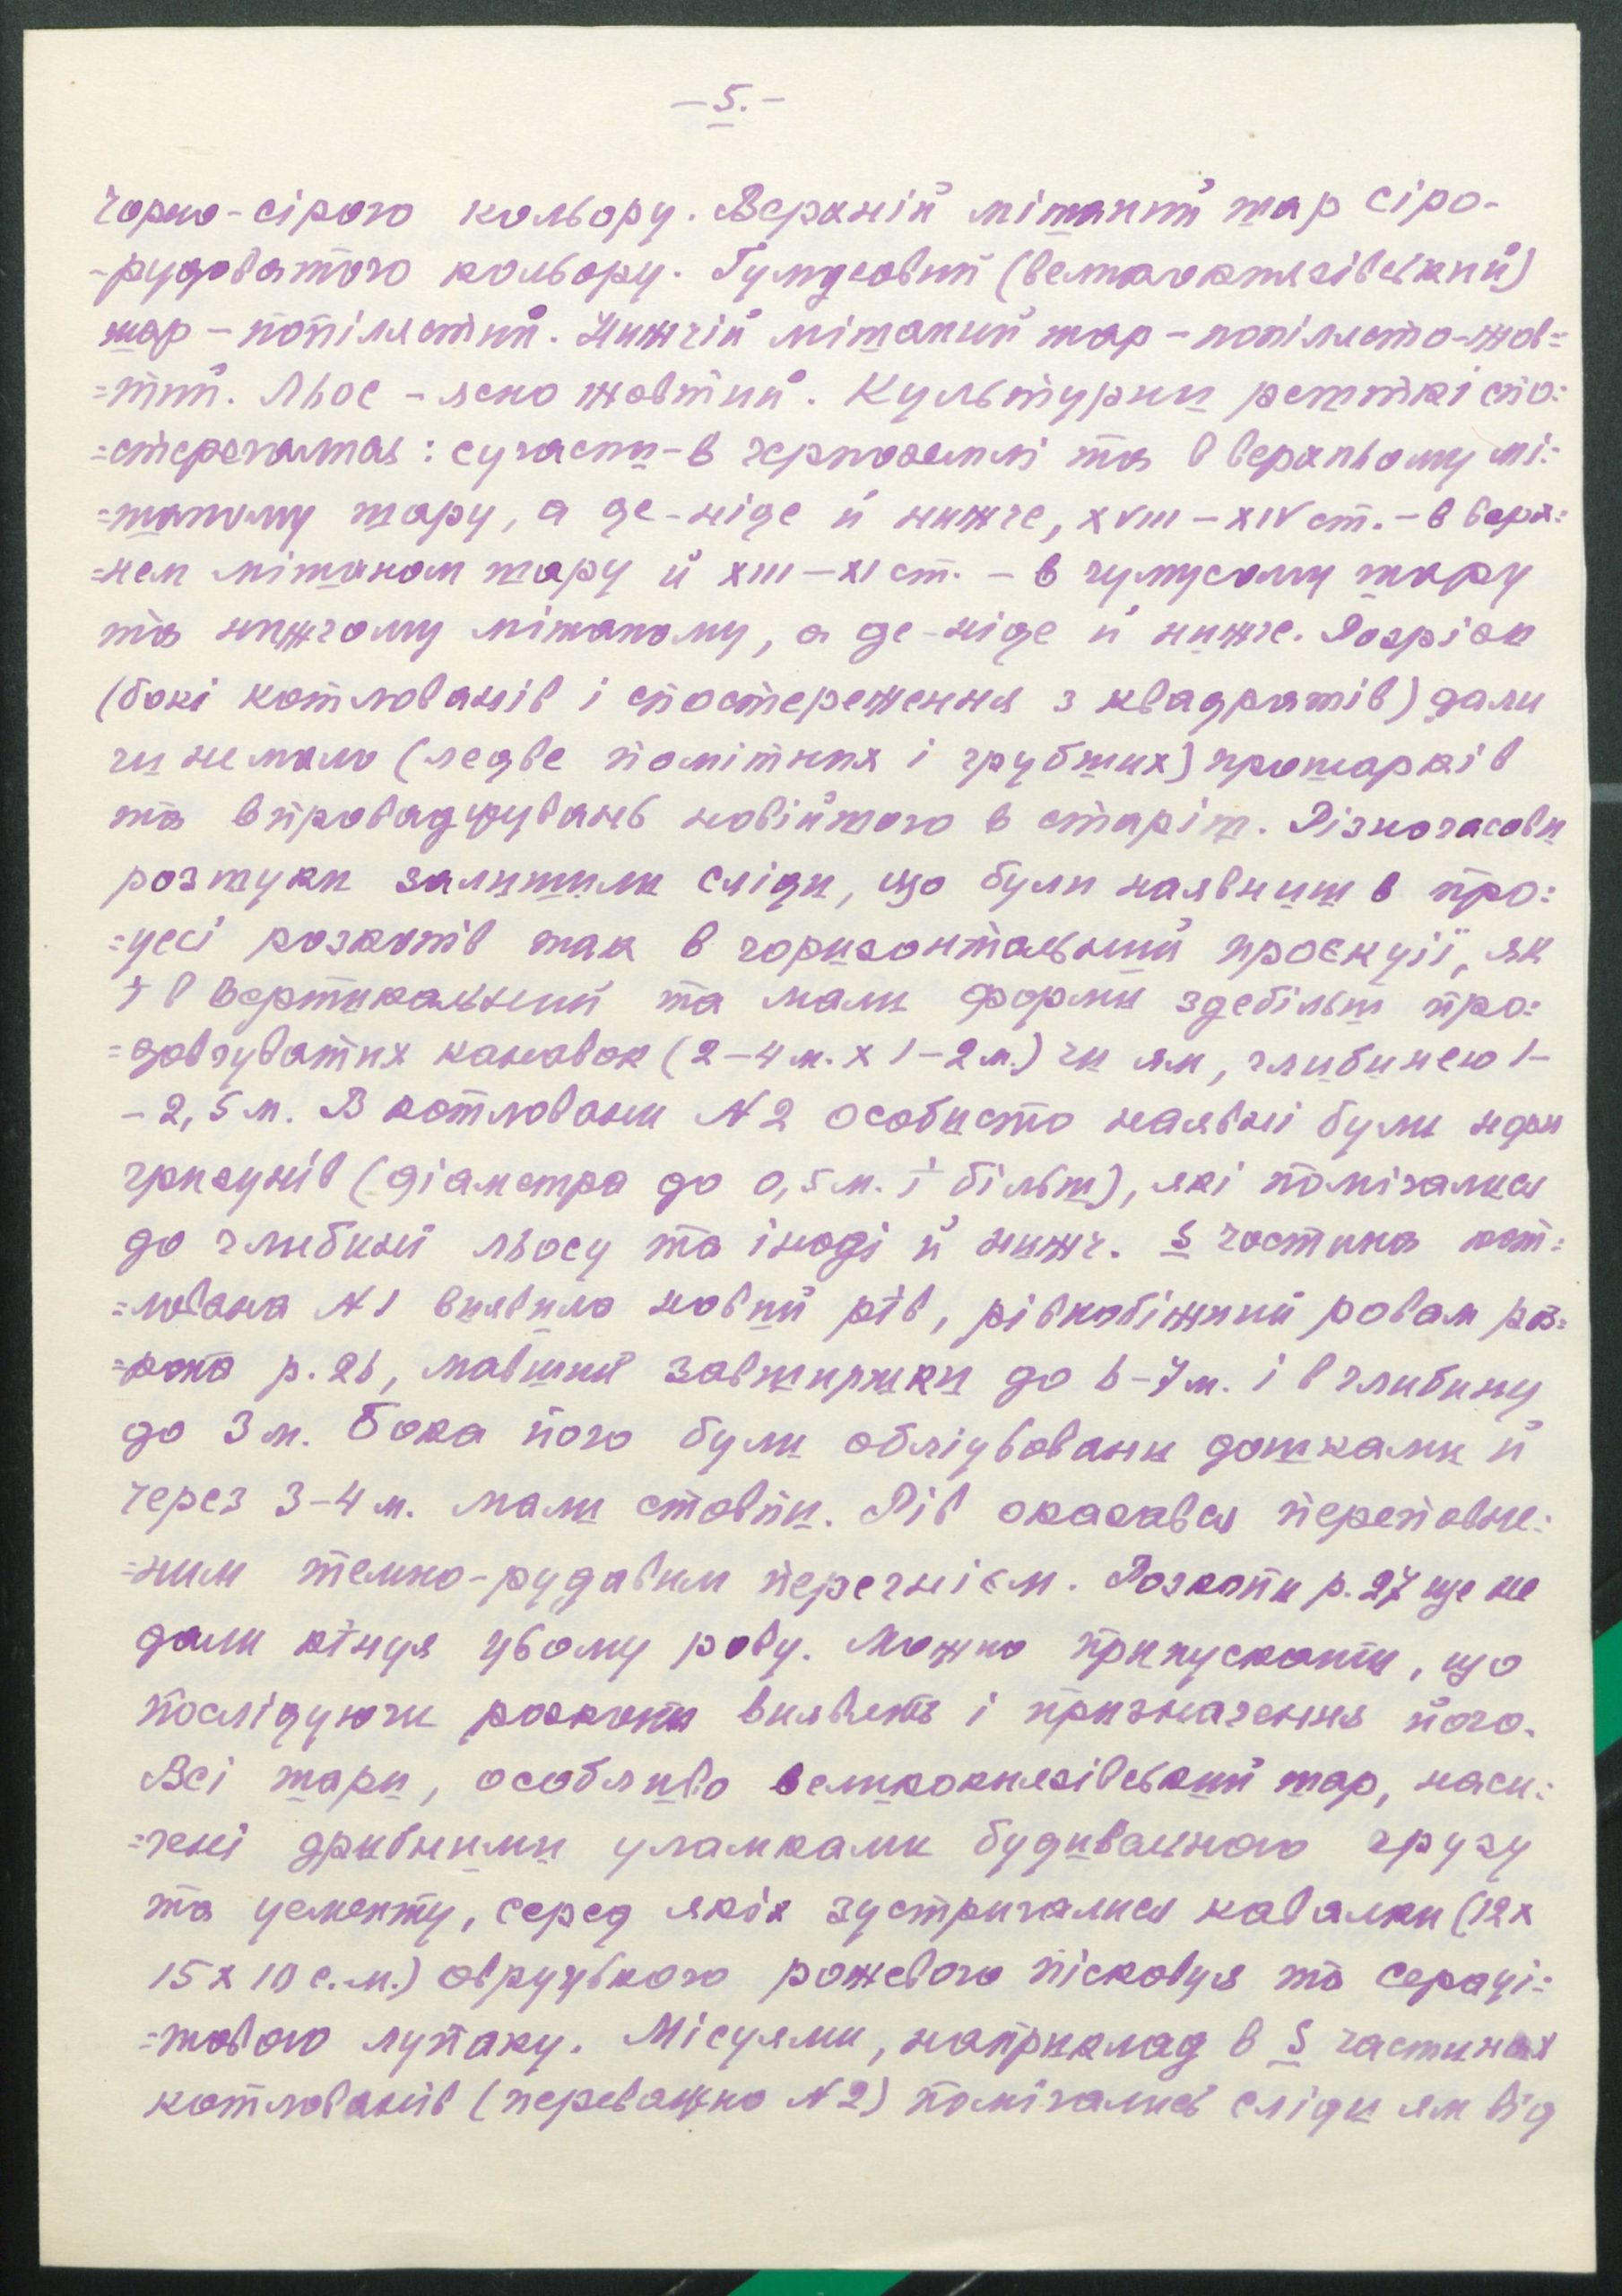 – 5. –
чорно-сірого кольору. Верхній мішаний шар сіро-
-рудоватого кольору. Гумусовий (великокнязівський)
шар – попілястий. Нижчій мішаний шар – попілясто-жов=
=тий. Льос – ясно жовтий. Культурни рештки спо=
=стерегались: сучасни – в черноземлі та в верхньому мі=
=шаному шару, а де-ніде й нижче, XVIII – XIV ст. – в верх=
=нем мішаном шару й XIII – XI ст. – в гумусому шару
та нижчому мішаному, а де-ніде й нижче. Розрізи
(бокі котлованів і спостереження з квадратів) дали
чи немало (ледве помітних і грубших) прошарків
та впроваджувань новійшого в старіш. Різночасови
розшуки залишили сліди, що були наявниш в про=
=цесі розкопів так в горизонтальний проєкції, як
і в вертикальний та мали форми здебільш про=
=довгуватих канавок (2 – 4 м. х 1 – 2 м.) чи ям, глибинею 1 –
– 2,5 м. В котловани N 2 особисто наявні були нори
гризунів (діаметра до 0,5 м. і більш), які помічалися
до глибини льосу та іноді й нижч. S частина кот=
=лована N 1 виявила новий рів, рівнобіжний ровам роз=
=копа р. 26, мавший завширшки до 6 – 7 м. і в глибину
до 3 м. Бока його були обліцьовани дошками й
через 3 – 4 м. мали стовпи. Рів оказався переповне=
=ним темно-рудавим перегнієм. Розкопи р. 27 ще не
дали кінця цьому рову. Можно припускати, що
послідуючи розкопи виявлеть і призначення його.
Всі шари, особливо великокнязівський шар, наси=
=чені дрибними уламками будивельного грузу
та цементу, серед якіх зустричалися кавалки (12 х
15 х 10 с.м.) овруцького рожевого пісковця та сераці=
=тового лупаку. Місцями, наприклад в S частинах
котлованів (переважно N 2) помічались сліди ям від